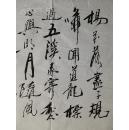 楊花落盡子規
啼聞道龍標
過五溪我寄愁
心與明月隨風